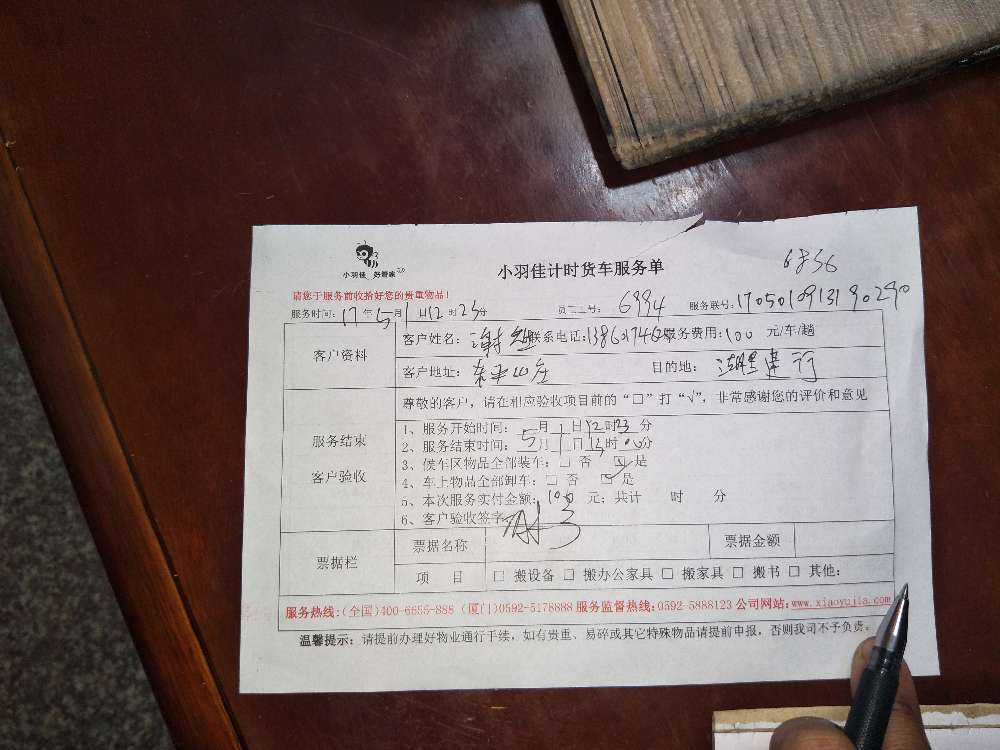 小羽佳 好管家
小羽佳计时货车服务单
6836
请您于服务前收拾好您的贵重物品!
服务时间: 17 年 5 月 1 日 12 时 23 分 员工工号: 6994 服务联号: 1705010913190290
客户资料
客户姓名: 谢 联系电话: 服务费用: 100 元/车/趟
客户地址: 东平山庄 目的地: 湖里建行
尊敬的客户,请在相应验收项目前的“☐”打“√”,非常感谢您的评价和意见
服务结束
客户验收
1、服务开始时间: 5 月 1 日 12 时 23 分
2、服务结束时间: 5 月 1 日 13 时 00 分
3、候车区物品全部装车: ☐ 否 ☑ 是
4、车上物品全部卸车: ☐ 否 ☑ 是
5、本次服务实付金额: 100 元; 共计 时 分
6、客户验收签字:
票据栏
票据名称 票据金额
项 目 ☐ 搬设备 ☐ 搬办公家具 ☐ 搬家具 ☐ 搬书 ☐ 其他:
服务热线:(全国)400-6655-888 (厦门)0592-5178888 服务监督热线:0592-5888123 公司网站:www.xiaoyujia.com
温馨提示: 请提前办理好物业通行手续,如有贵重、易碎或其它特殊物品请提前申报,否则我司不予负责。